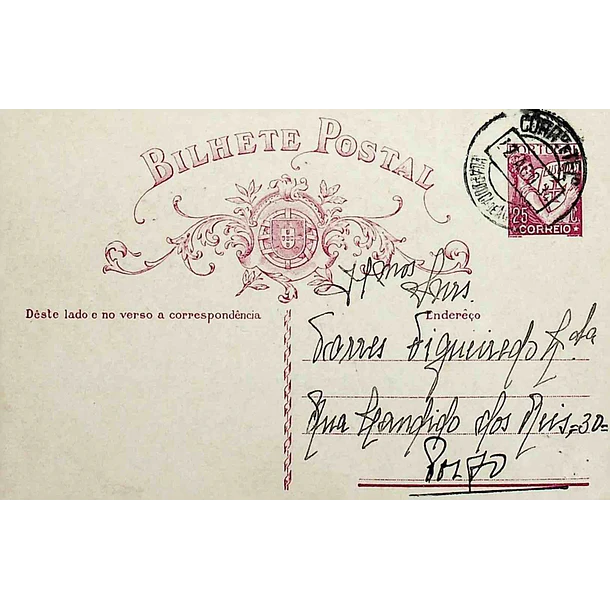 BILHETE POSTAL
CORREIOS
PORTUGAL
25 C.
CORREIO
Déste lado e no verso a correspondência
Enderêço
Ilmos Snrs.
Torres Figueiredo Lda
Rua Candido dos Reis, =30=
Porto